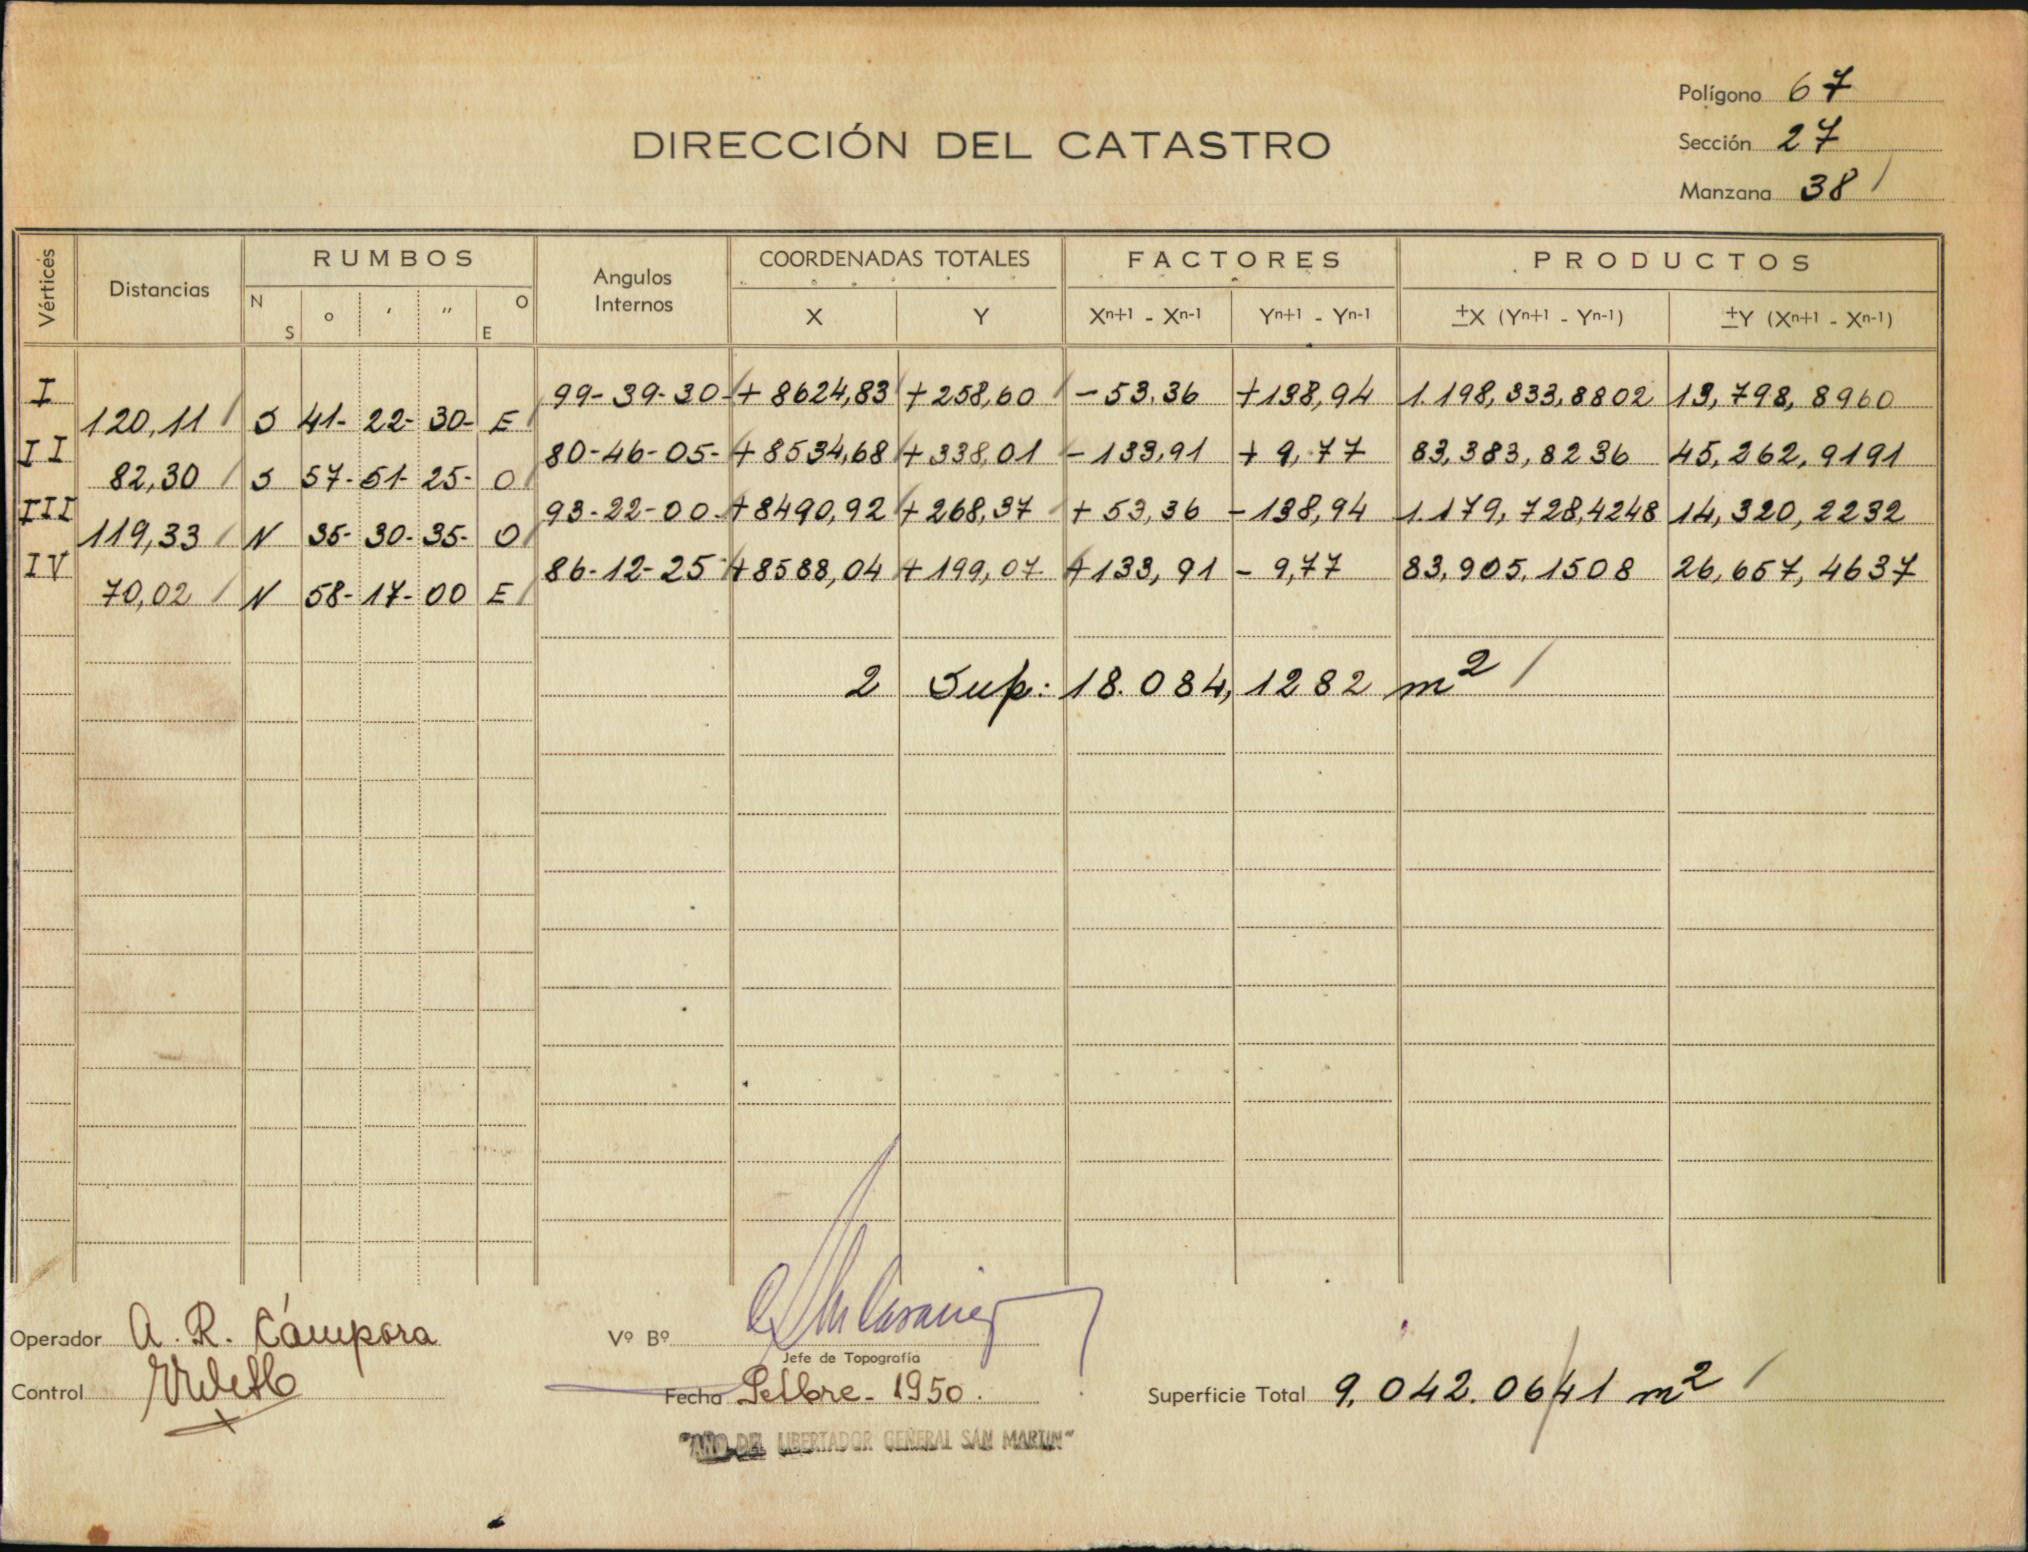 Polígono 67
DIRECCIÓN DEL CATASTRO
Sección 27
Manzana 38 /
Vértices Distancias RUMBOS Angulos Internos COORDENADAS TOTALES FACTORES PRODUCTOS
N S ° ' " O E X Y Xn+1 - Xn-1 Yn+1 - Yn-1 ±X (Yn+1 - Yn-1) ±Y (Xn+1 - Xn-1)
I 99-39-30- + 8624,83 + 258,60 - 53,36 +138,94 1.198,333,8802 13,798,8960
120,11 S 41- 22- 30- E
II 80-46-05- + 8534,68 + 338,01 - 133,91 + 9,77 83,383,8236 45,262,9191
82,30 S 57- 51- 25- O
III 93-22-00- + 8490,92 + 268,37 + 53,36 - 138,94 1.179,728,4248 14,320,2232
119,33 N 35- 30- 35- O
IV 86-12-25 + 8588,04 + 199,07 + 133,91 - 9,77 83,905,1508 26,657,4637
70,02 N 58- 17- 00 E
2 Sup: 18.084,1282 m2 /
Operador A. R. Cámpora
Vº Bº
Jefe de Topografía
Control
Fecha Setbre - 1950.
Superficie Total 9,042.0641 m2 /
"AÑO DEL LIBERTADOR GENERAL SAN MARTIN"